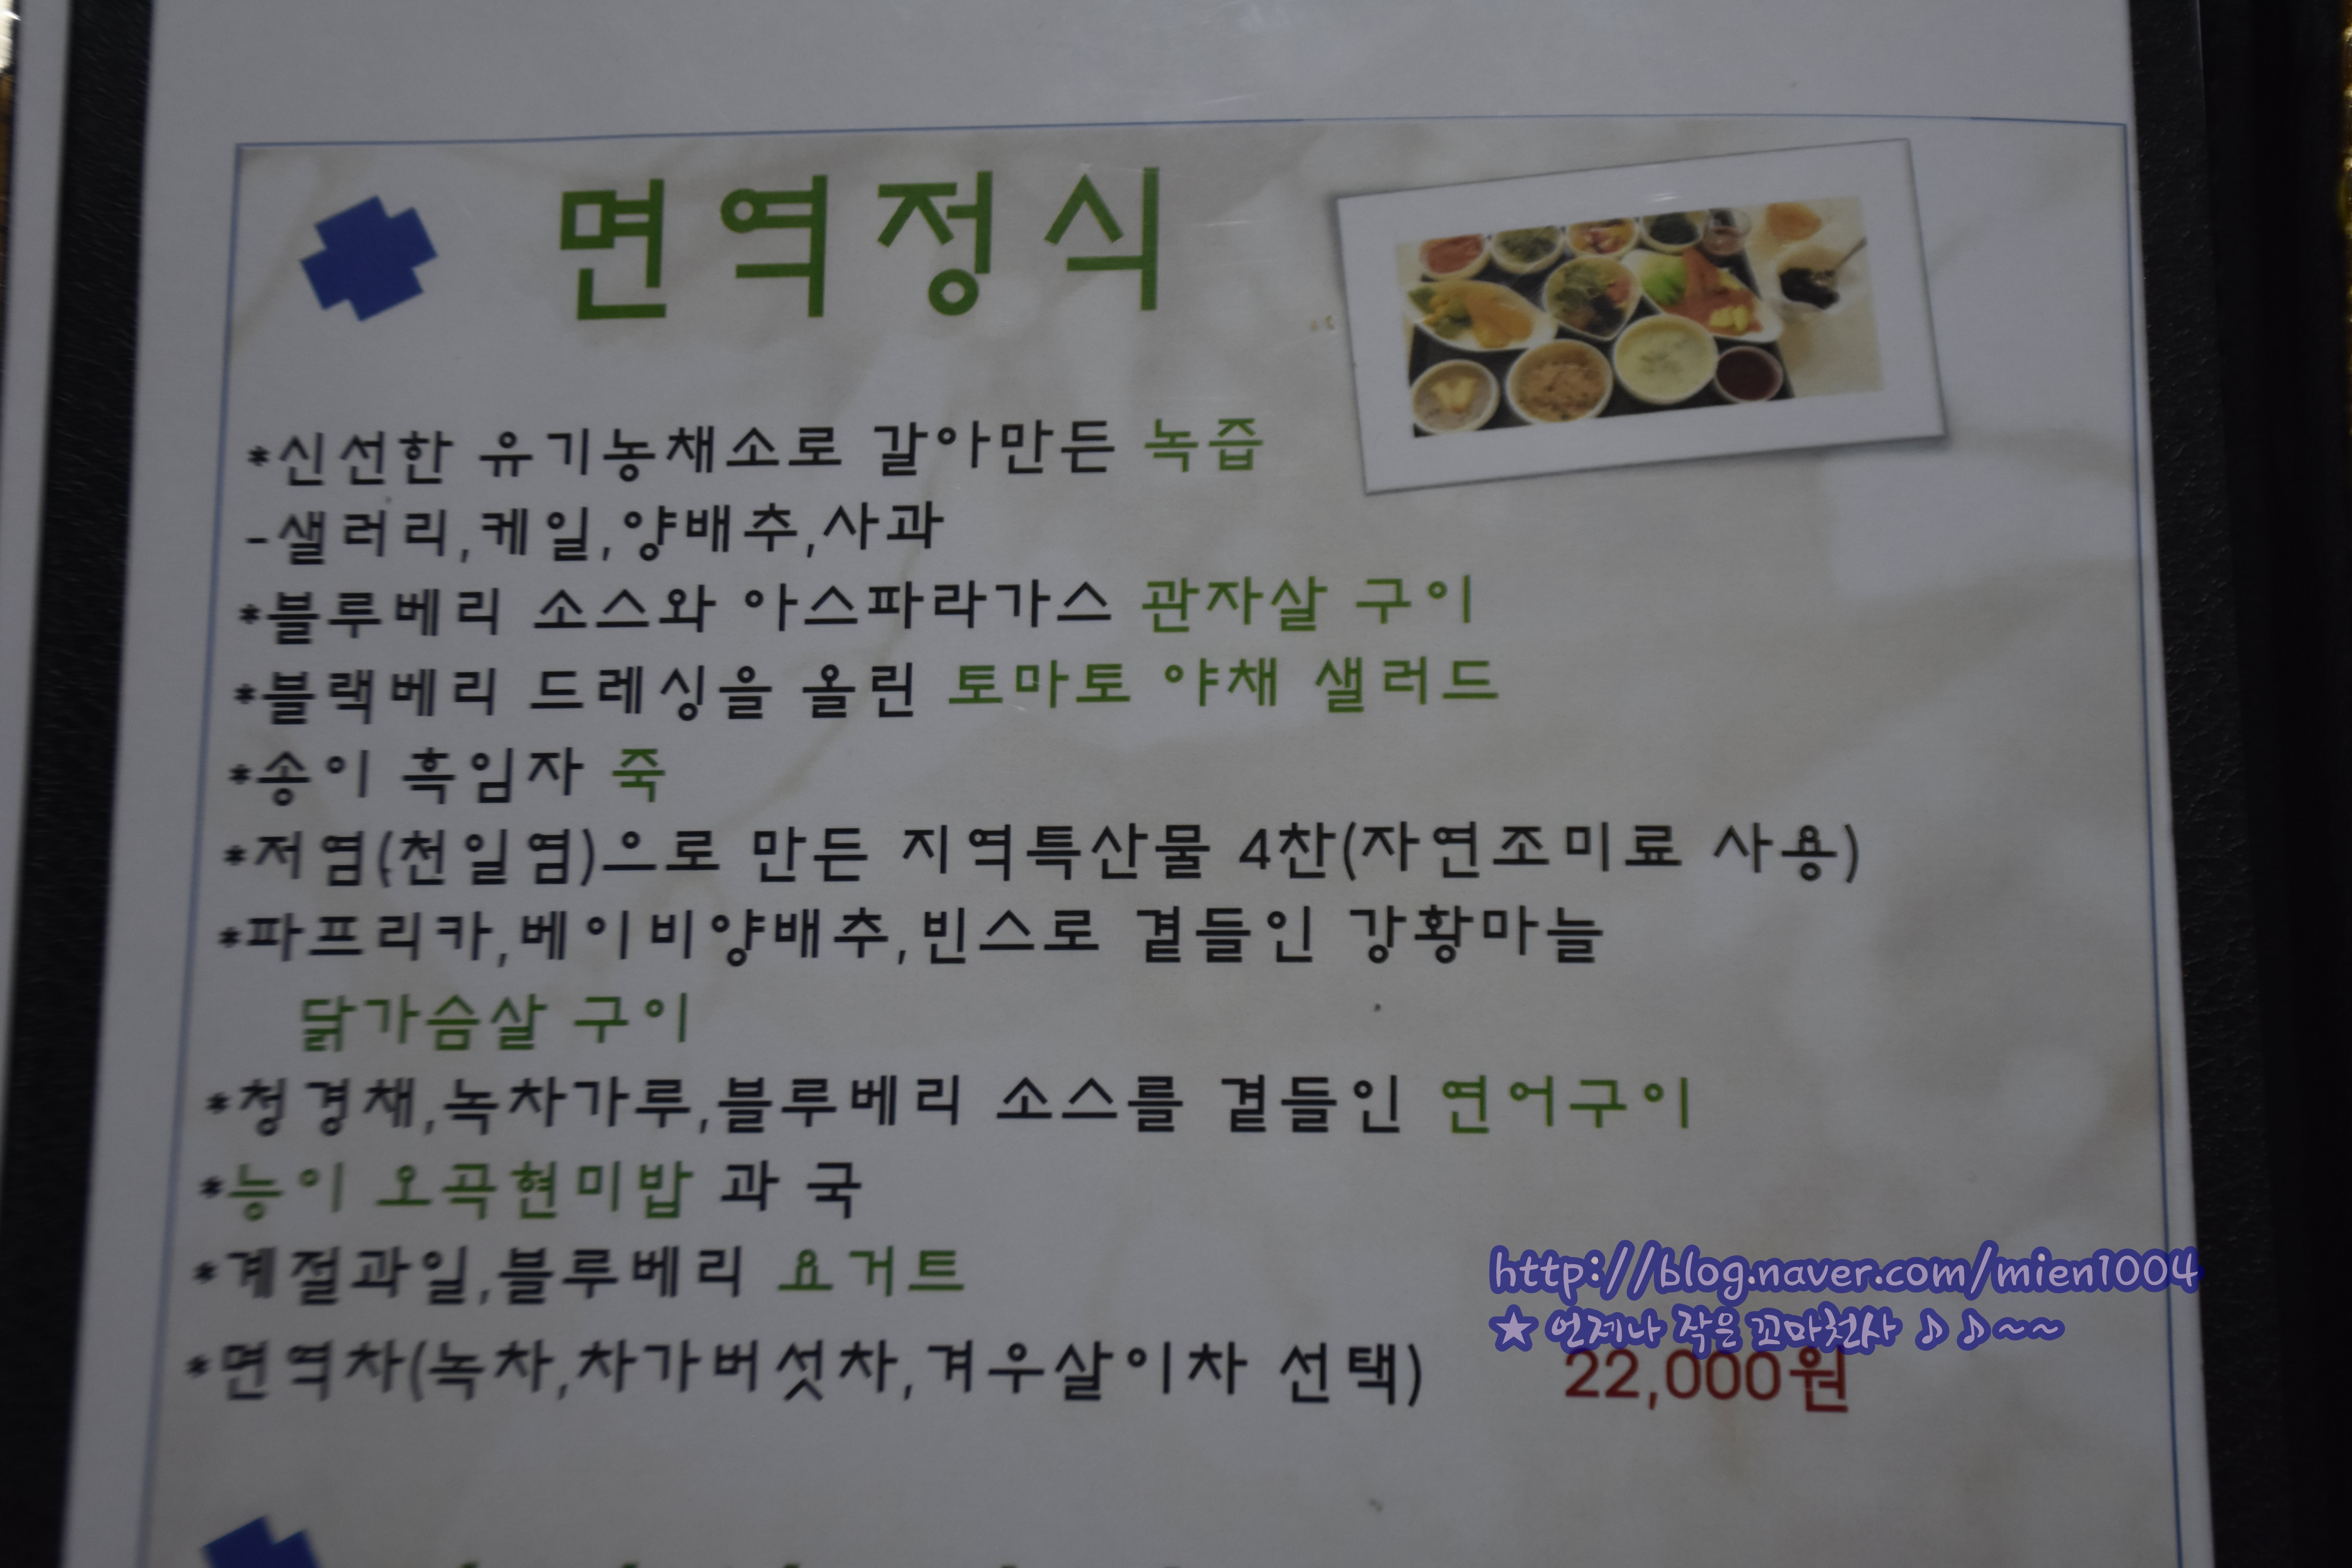 면역정식
*신선한 유기농채소로 갈아만든 녹즙
-샐러리,케일,양배추,사과
*블루베리 소스와 아스파라가스 관자살 구이
*블랙베리 드레싱을 올린 토마토 야채 샐러드
*송이 흑임자 죽
*저염(천일염)으로 만든 지역특산물 4찬(자연조미료 사용)
*파프리카,베이비양배추,빈스로 곁들인 강황마늘
닭가슴살 구이
*청경채,녹차가루,블루베리 소스를 곁들인 연어구이
*능이 오곡현미밥 과 국
*계절과일,블루베리 요거트
http://blog.naver.com/mien1004
★ 언제나 작은 꼬마천사 ♪ ♪~~
*면역차(녹차,차가버섯차,겨우살이차 선택) 22,000원